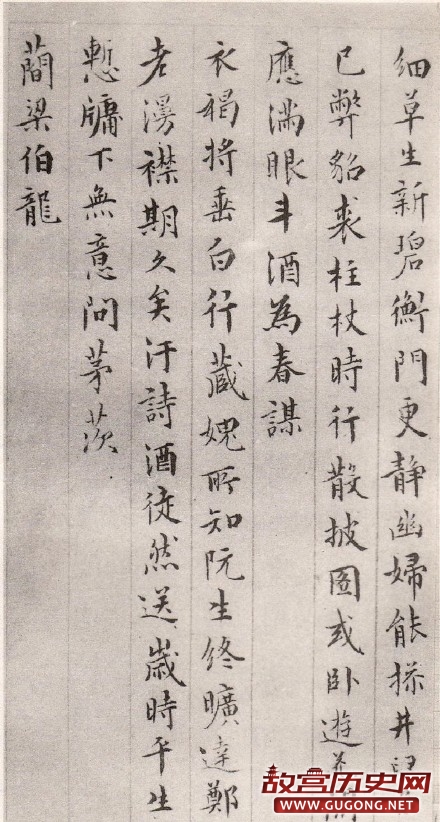 細草生新碧衡門更静幽婦能操井臼
已弊貂裘柱杖時行散披圖或卧遊
應滿眼斗酒為春謀
衣褐将垂白行藏媿所知阮生終曠達鄭
老漫襟期久矣汗詩酒徒然送歲時平生
慙牖下無意問茅茨
蕳梁伯龍
故宫历史网
WWW.GUGONG.NET